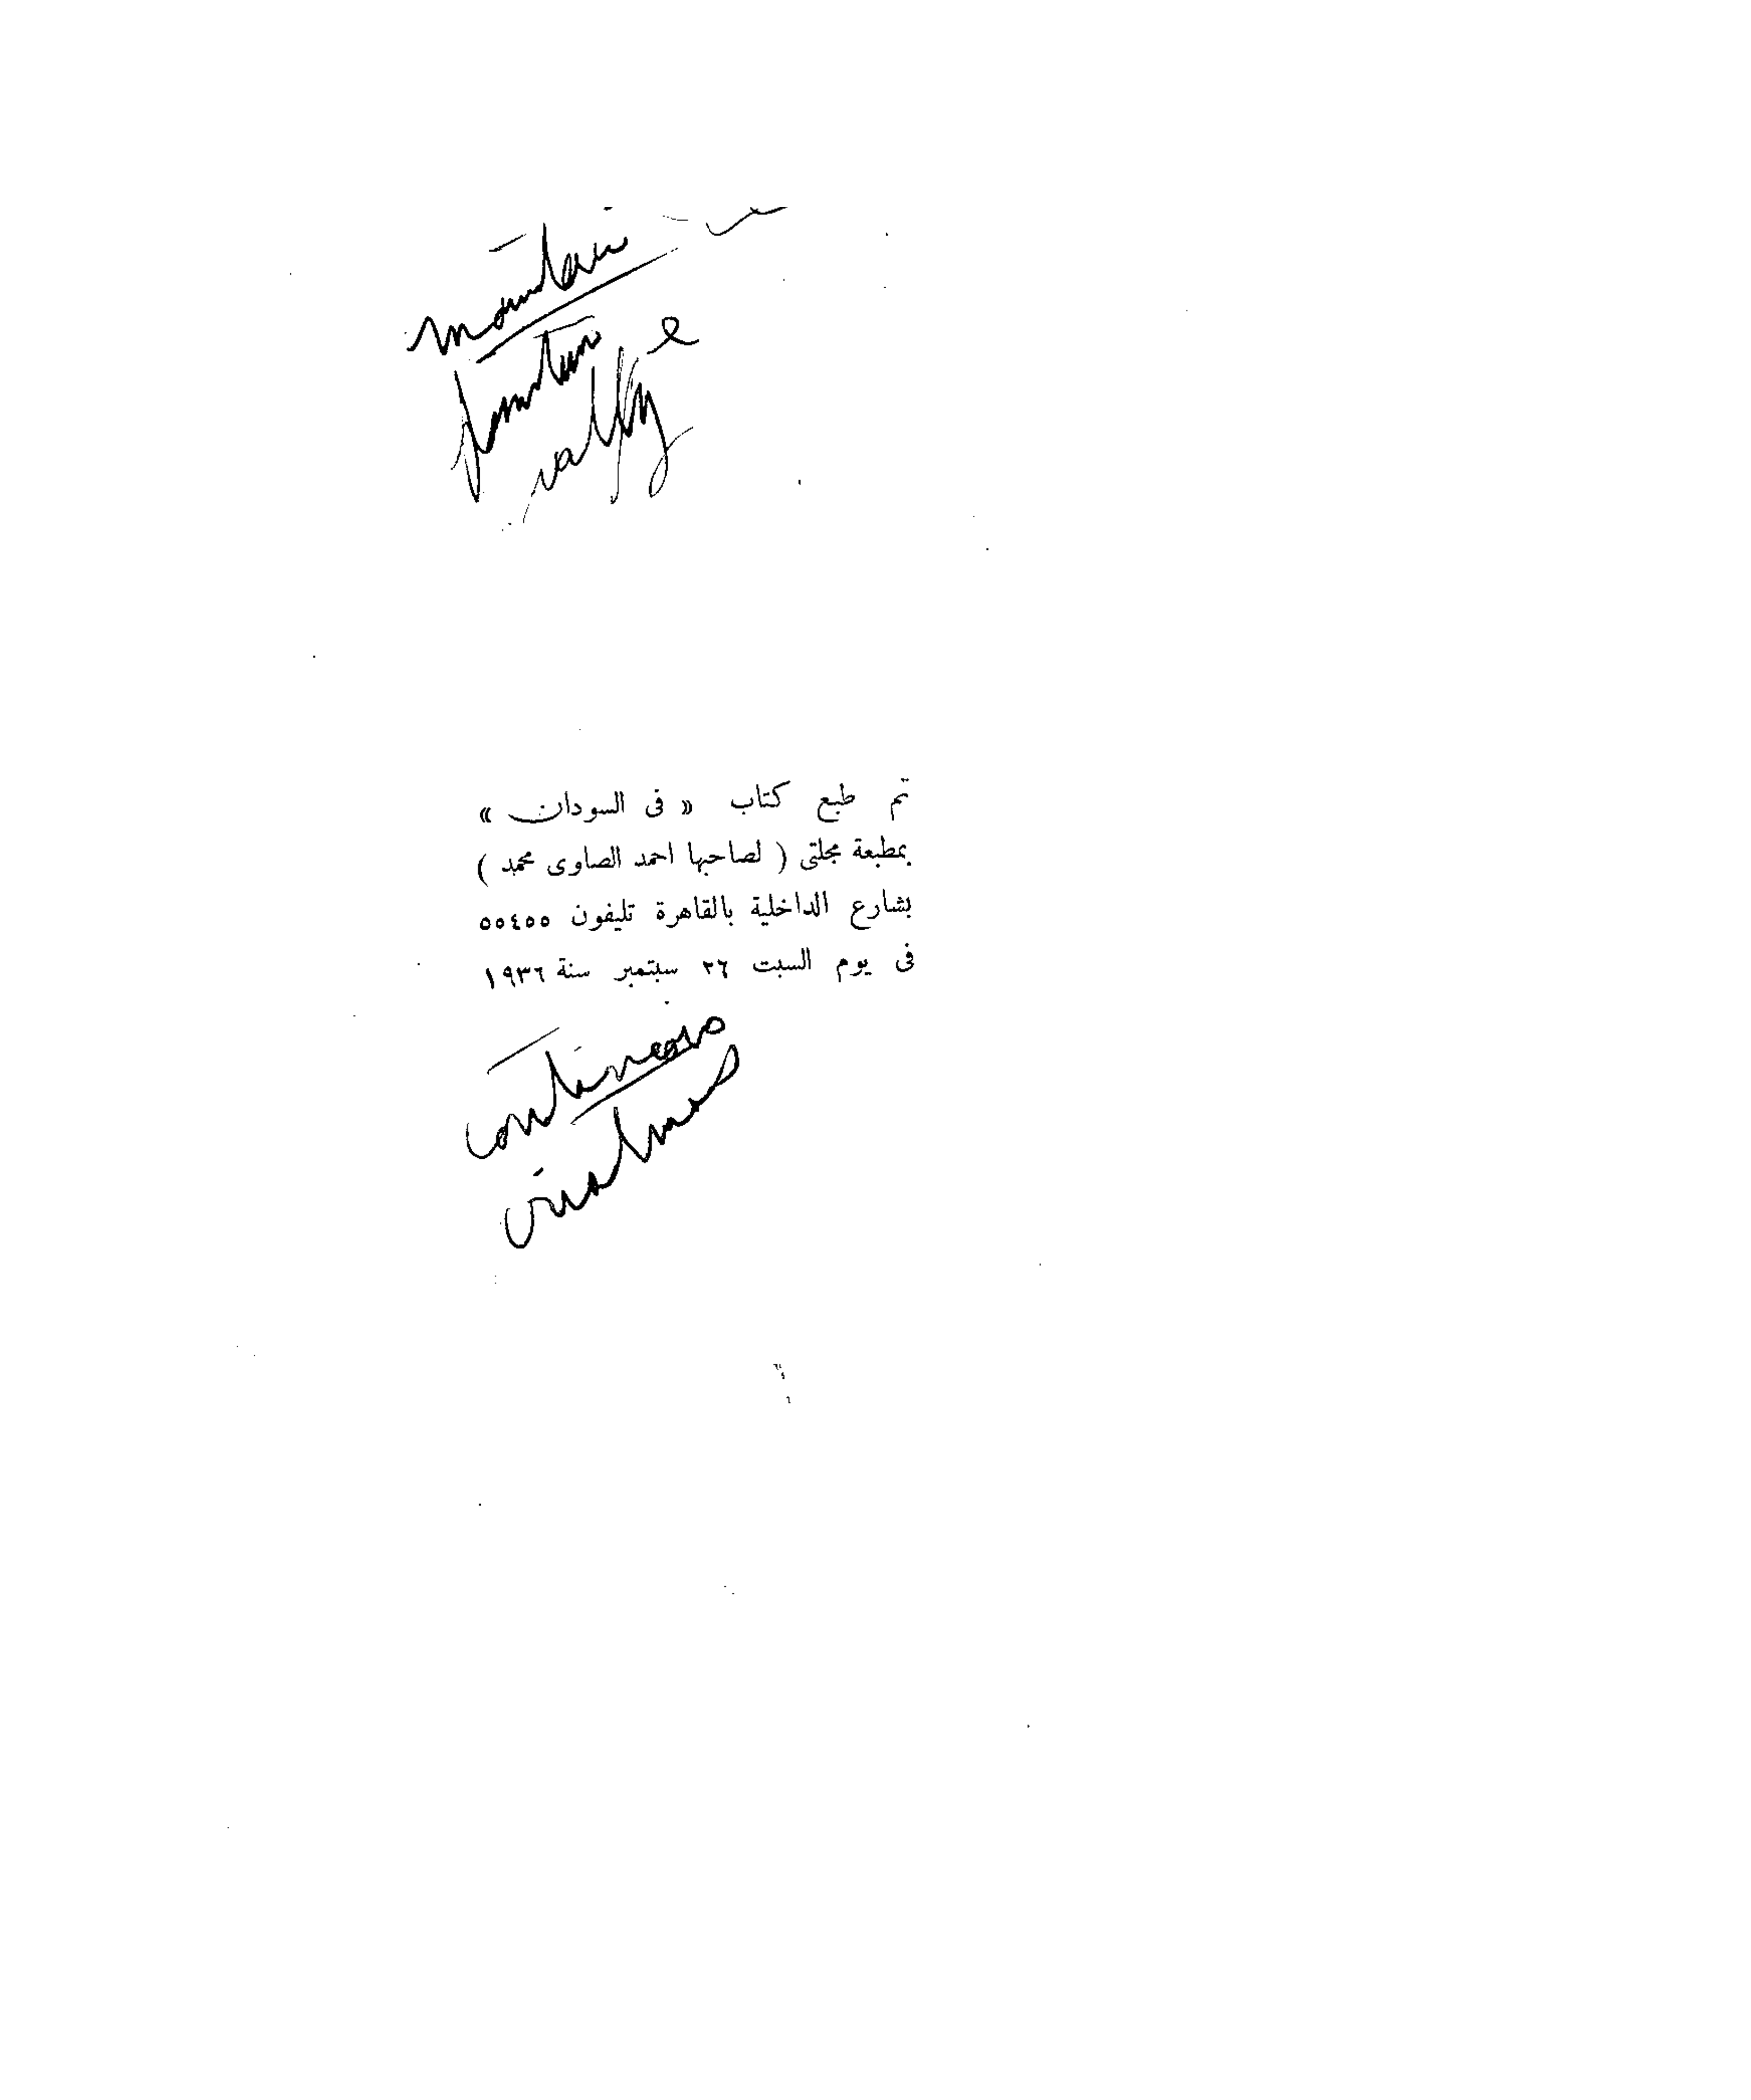 mountain
valley
تم طبع كتاب « فى السودان »
بمطبعة مجلتى ( لصاحبها احمد الصاوى محمد )
بشارع الداخلية بالقاهرة تليفون ٥٥٤٥٥
فى يوم السبت ٢٦ سبتمبر سنة ١٩٣٦